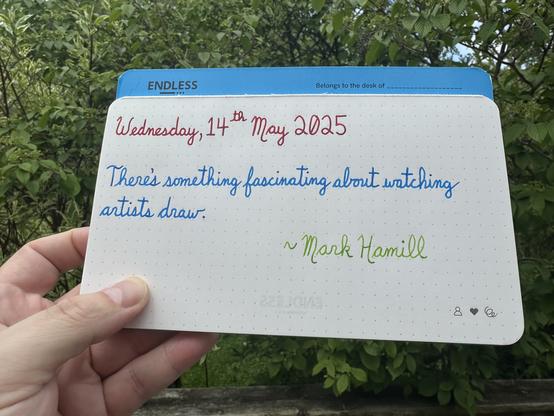 ENDLESS
Belongs to the desk of
Wednesday, 14th May 2025
There's something fascinating about watching
artists draw.
~ Mark Hamill
ENDLESS